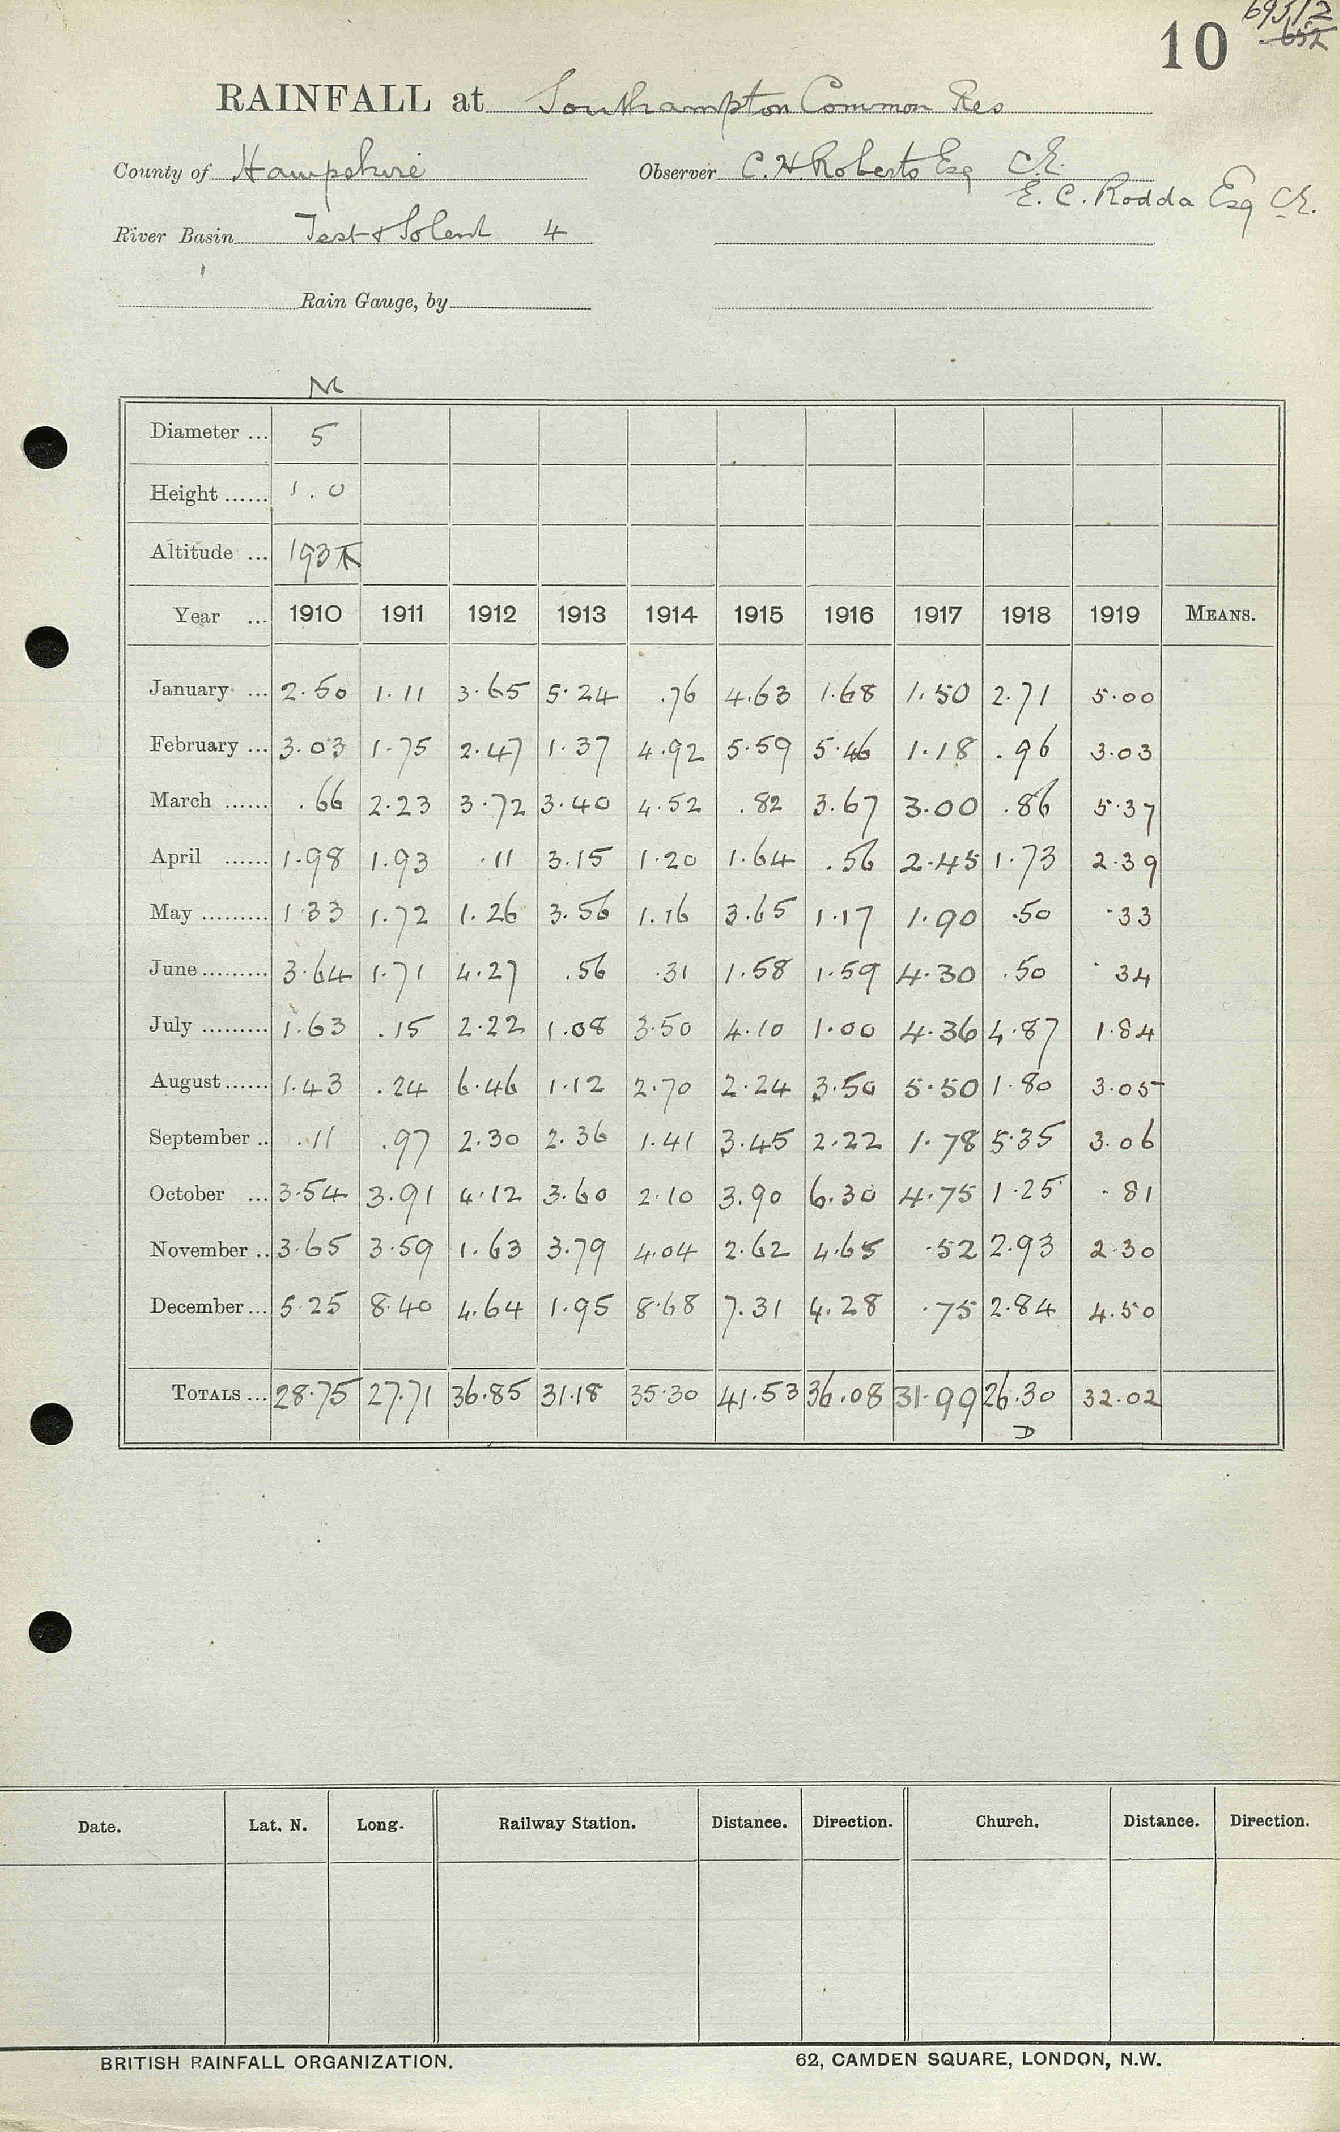 10 695/2
652
RAINFALL at Southampton Common Res
County of Hampshire Observer C. H Roberts Esq C.E.
E. C. Rodda Esq C.E.
River Basin Test & Solent 4
Rain Gauge, by
M
Diameter ... 5
Height ...... 1.0
Altitude ... 193
Year ... 1910 1911 1912 1913 1914 1915 1916 1917 1918 1919 MEANS.
January ... 2.50 1.11 3.65 5.24 .76 4.63 1.68 1.50 2.71 5.00
February ... 3.03 1.75 2.47 1.37 4.92 5.59 5.46 1.18 .96 3.03
March ...... .66 2.23 3.72 3.40 4.52 .82 3.67 3.00 .86 5.37
April ...... 1.98 1.93 .11 3.15 1.20 1.64 .56 2.45 1.73 2.39
May ......... 1.33 1.72 1.26 3.56 1.16 3.65 1.17 1.90 .50 .33
June ......... 3.64 1.71 4.27 .56 .31 1.58 1.59 4.30 .50 .34
July ......... 1.63 .15 2.22 1.08 3.50 4.10 1.00 4.36 4.87 1.84
August ...... 1.43 .24 6.46 1.12 2.70 2.24 3.50 5.50 1.80 3.05
September .. .11 .97 2.30 2.36 1.41 3.45 2.22 1.78 5.35 3.06
October ... 3.54 3.91 4.12 3.60 2.10 3.90 6.30 4.75 1.25 .81
November .. 3.65 3.59 1.63 3.79 4.04 2.62 4.65 .52 2.93 2.30
December ... 5.25 8.40 4.64 1.95 8.68 7.31 4.28 .75 2.84 4.50
TOTALS ... 28.75 27.71 36.85 31.18 35.30 41.53 36.08 31.99 26.30 32.02
D
Date. Lat. N. Long. Railway Station. Distance. Direction. Church. Distance. Direction.
BRITISH RAINFALL ORGANIZATION. 62, CAMDEN SQUARE, LONDON, N.W.